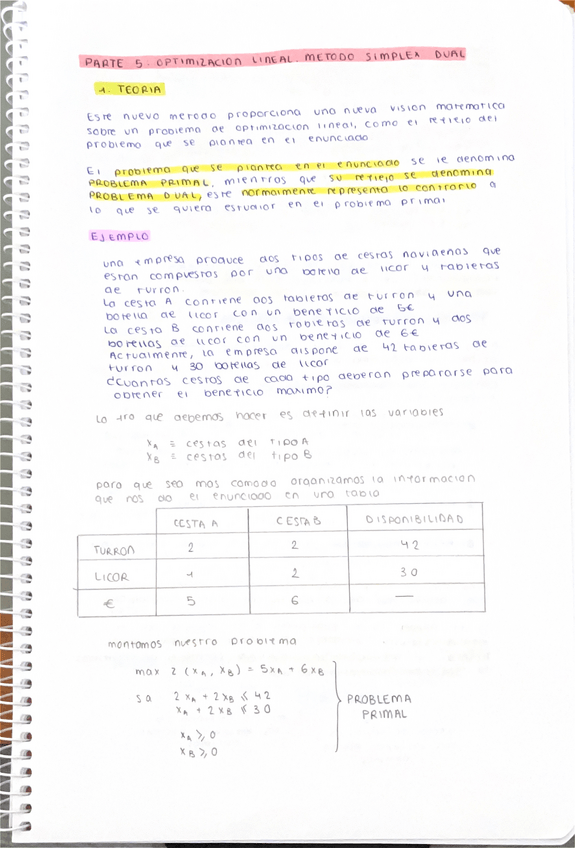 PARTE 5. OPTIMIZACION LINEAL. METODO SIMPLEX DUAL
1. TEORIA
Este nuevo metodo proporciona una nueva vision matematica
sobre un problema de optimizacion lineal, como el reflejo del
problema que se plantea en el enunciado
El problema que se plantea en el enunciado se le denomina
PROBLEMA PRIMAL, mientras que su reflejo se denomina
PROBLEMA DUAL, este normalmente representa lo contrario a
lo que se quiera estudiar en el problema primal
EJEMPLO
una empresa produce dos tipos de cestas navideñas que
estan compuestos por una botella de licor y tabletas
de turron.
La cesta A contiene dos tabletas de turron y una
botella de licor con un beneficio de 5€
La cesta B contiene dos tabletas de turron y dos
botellas de licor con un beneficio de 6€
Actualmente, la empresa dispone de 42 tabletas de
turron y 30 botellas de licor
¿Cuantas cestas de cada tipo deberan prepararse para
obtener el beneficio maximo?
Lo 1ro que debemos hacer es definir las variables
xA ≡ cestas del tipo A
xB ≡ cestas del tipo B
para que sea mas comodo organizamos la informacion
que nos da el enunciado en una tabla
CESTA A CESTA B DISPONIBILIDAD
TURRON 2 2 42
LICOR 1 2 30
€ 5 6 —
montamos nuestro problema
max z (xA, xB) = 5xA + 6xB
sa 2xA + 2xB ≤ 42
xA + 2xB ≤ 30
xA ≥ 0
xB ≥ 0
PROBLEMA
PRIMAL